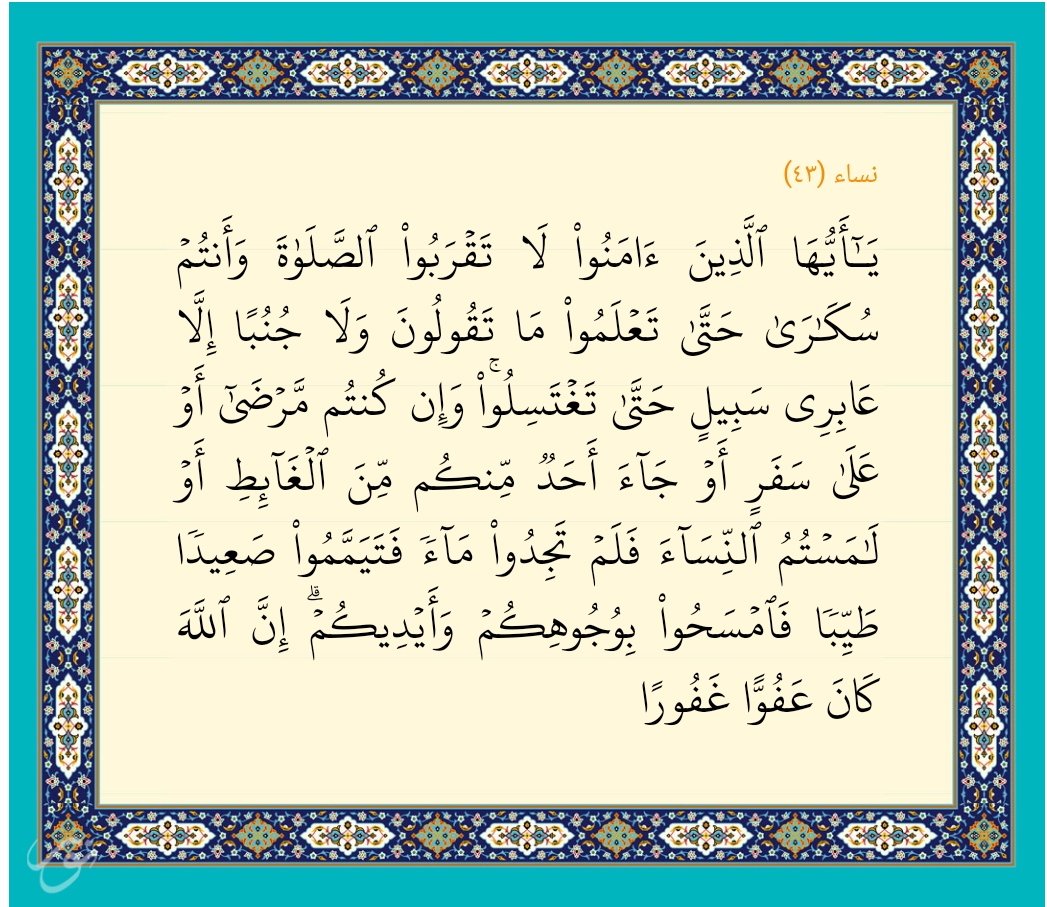 نساء (٤٣)
يَـٰٓأَيُّهَا ٱلَّذِينَ ءَامَنُوا۟ لَا تَقْرَبُوا۟ ٱلصَّلَوٰةَ وَأَنتُمْ
سُكَـٰرَىٰ حَتَّىٰ تَعْلَمُوا۟ مَا تَقُولُونَ وَلَا جُنُبًا إِلَّا
عَابِرِى سَبِيلٍ حَتَّىٰ تَغْتَسِلُوا۟ ۚ وَإِن كُنتُم مَّرْضَىٰٓ أَوْ
عَلَىٰ سَفَرٍ أَوْ جَآءَ أَحَدٌ مِّنكُم مِّنَ ٱلْغَآئِطِ أَوْ
لَـٰمَسْتُمُ ٱلنِّسَآءَ فَلَمْ تَجِدُوا۟ مَآءً فَتَيَمَّمُوا۟ صَعِيدًا
طَيِّبًا فَٱمْسَحُوا۟ بِوُجُوهِكُمْ وَأَيْدِيكُمْ ۗ إِنَّ ٱللَّهَ
كَانَ عَفُوًّا غَفُورًا